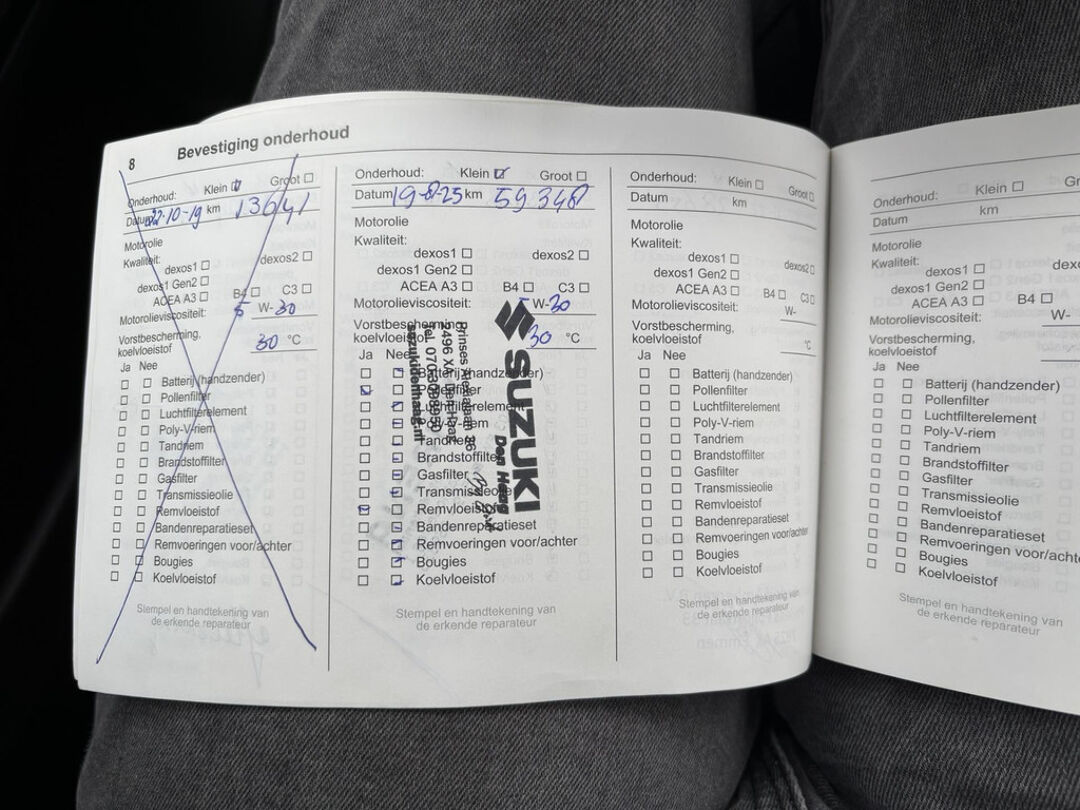 8 Bevestiging onderhoud
Onderhoud: Klein Groot
Datum 22-10-19 km 13641
Motorolie
Kwaliteit:
dexos1 dexos2
dexos1 Gen2
ACEA A3 B4 C3
Motorolieviscositeit: 5 W-30
Vorstbescherming,
koelvloeistof 30 °C
Ja Nee
Batterij (handzender)
Pollenfilter
Luchtfilterelement
Poly-V-riem
Tandriem
Brandstoffilter
Gasfilter
Transmissieolie
Remvloeistof
Bandenreparatieset
Remvoeringen voor/achter
Bougies
Koelvloeistof
Stempel en handtekening van
de erkende reparateur
Onderhoud: Klein Groot
Datum 19-8-25 km 59348
Motorolie
Kwaliteit:
dexos1 dexos2
dexos1 Gen2
ACEA A3 B4 C3
Motorolieviscositeit: 5 W-30
Vorstbescherming,
koelvloeistof 30 °C
Ja Nee
Batterij (handzender)
Pollenfilter
Luchtfilterelement
Poly-V-riem
Tandriem
Brandstoffilter
Gasfilter
Transmissieolie
Remvloeistof
Bandenreparatieset
Remvoeringen voor/achter
Bougies
Koelvloeistof
Stempel en handtekening van
de erkende reparateur
SUZUKI
Den Haag
Prinses
2496 Den Haag
Tel. 070
suzukidenhaag.nl
Onderhoud: Klein Groot
Datum km
Motorolie
Kwaliteit:
dexos1 dexos2
dexos1 Gen2
ACEA A3 B4 C3
Motorolieviscositeit: W-
Vorstbescherming,
koelvloeistof °C
Ja Nee
Batterij (handzender)
Pollenfilter
Luchtfilterelement
Poly-V-riem
Tandriem
Brandstoffilter
Gasfilter
Transmissieolie
Remvloeistof
Bandenreparatieset
Remvoeringen voor/achter
Bougies
Koelvloeistof
Stempel en handtekening van
de erkende reparateur
Onderhoud: Klein
Datum km
Motorolie
Kwaliteit:
dexos1 dexo
dexos1 Gen2
ACEA A3 B4
Motorolieviscositeit: W-
Vorstbescherming,
koelvloeistof
Ja Nee
Batterij (handzender)
Pollenfilter
Luchtfilterelement
Poly-V-riem
Tandriem
Brandstoffilter
Gasfilter
Transmissieolie
Remvloeistof
Bandenreparatieset
Remvoeringen voor/achte
Bougies
Koelvloeistof
Stempel en handtekening van
de erkende reparateur